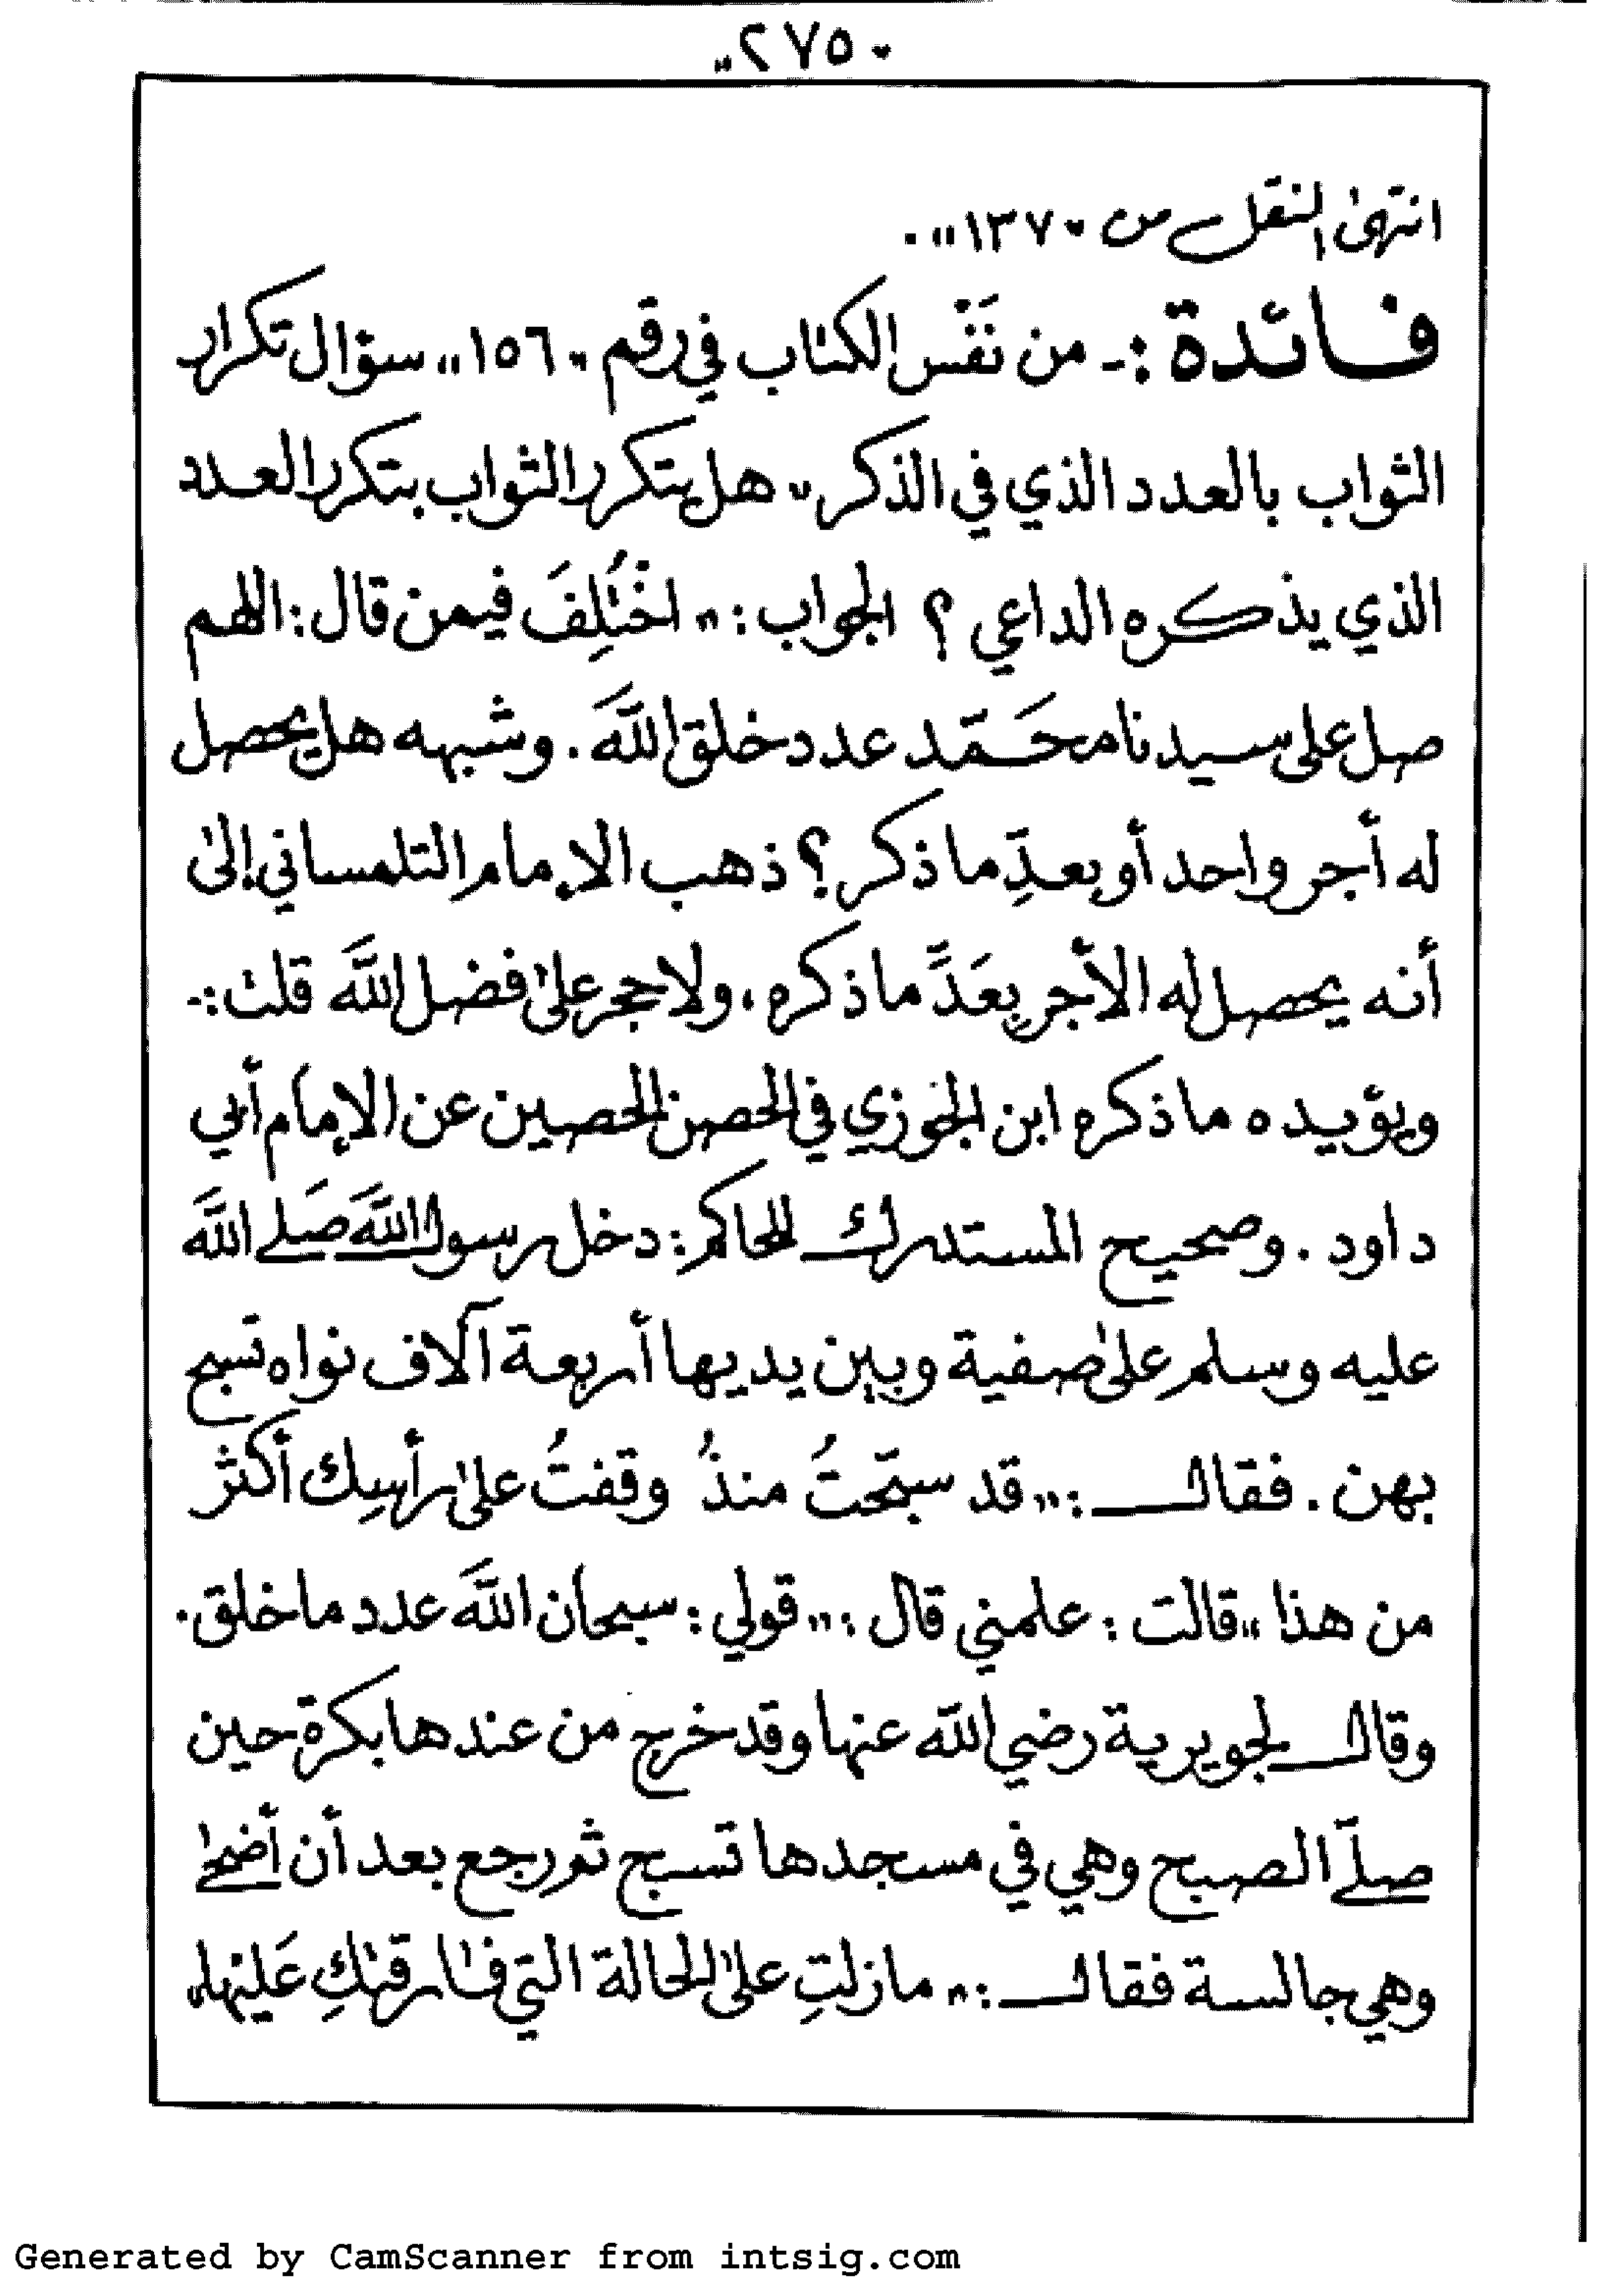 "٢٧٥"
انتهى النقل من "١٣٧" .
فائدة :- من نَفْس الكتاب في رقم "١٥٦" سؤال تكرار
الثواب بالعدد الذي في الذكر " هل يتكرر الثواب بتكرر العدد
الذي يذكره الداعي ؟ الجواب : " اخْتُلِفَ فيمن قال : اللهم
صل على سيدنا محَمّد عدد خلق اللَّه . وشبهه هل يحصل
له أجر واحد أو بعدِّ ما ذكر ؟ ذهب الإمام التلمساني إلىٰ
أنه يحصل له الأجر بِعَدِّ ما ذكره ، ولا حجر علىٰ فضل اللَّه قلت :-
ويؤيده ما ذكره ابن الجوزي في الحصن الحصين عن الإمام أبي
داود . وصحيح المستدرك للحاكم : دخل رسول اللَّه صَلى اللَّه
عليه وسلم علىٰ صفية وبين يديها أربعة آلاف نواه تسبح
بهن . فقال : " قد سبّحتُ منذُ وقفتُ علىٰ رأسِك أكثر
من هذا " قالت : علمني قال : " قولي : سبحان اللَّه عدد ما خلق .
وقال لجويرية رضي اللّه عنها وقد خرج من عندها بكرة حين
صلّى الصبح وهي في مسجدها تسبح ثم رجع بعد أن أضحىٰ
وهي جالسة فقال : " مازلتِ علىٰ الحالة التي فارقتكِ عَليْها "
Generated by CamScanner from intsig.com